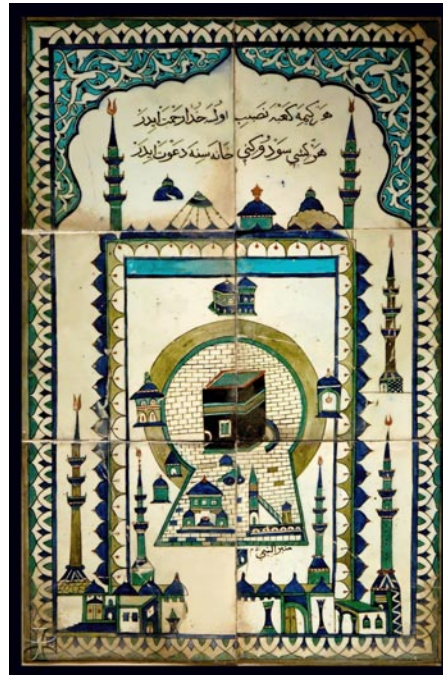 هر كيمه كعبه نصيب اولسه خدا رحمت ايدر
هر كشي سودوكني خانه سنه دعوت ايدر
منبر النبي